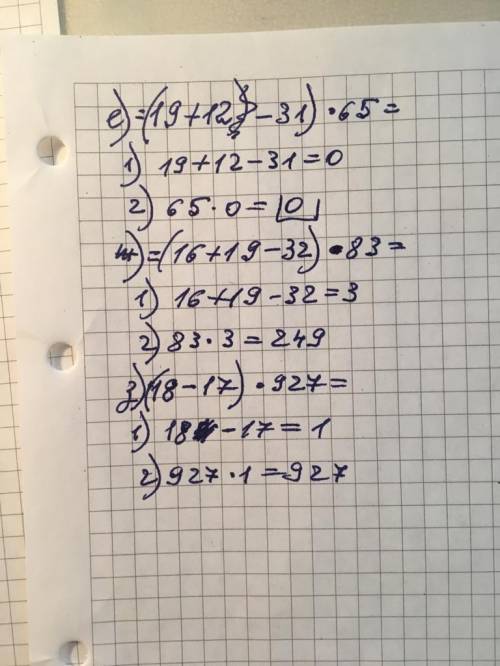 е) =(19+12-31)·65=
1) 19+12-31=0
2) 65·0=0
ж) =(16+19-32)·83=
1) 16+19-32=3
2) 83·3=249
з) (18-17)·927=
1) 18-17=1
2) 927·1=927